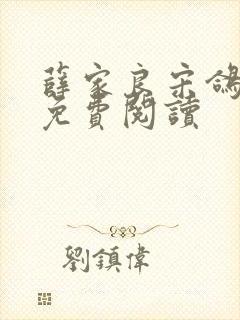 薛家良宋鴿
免費閱讀
劉鎮偉